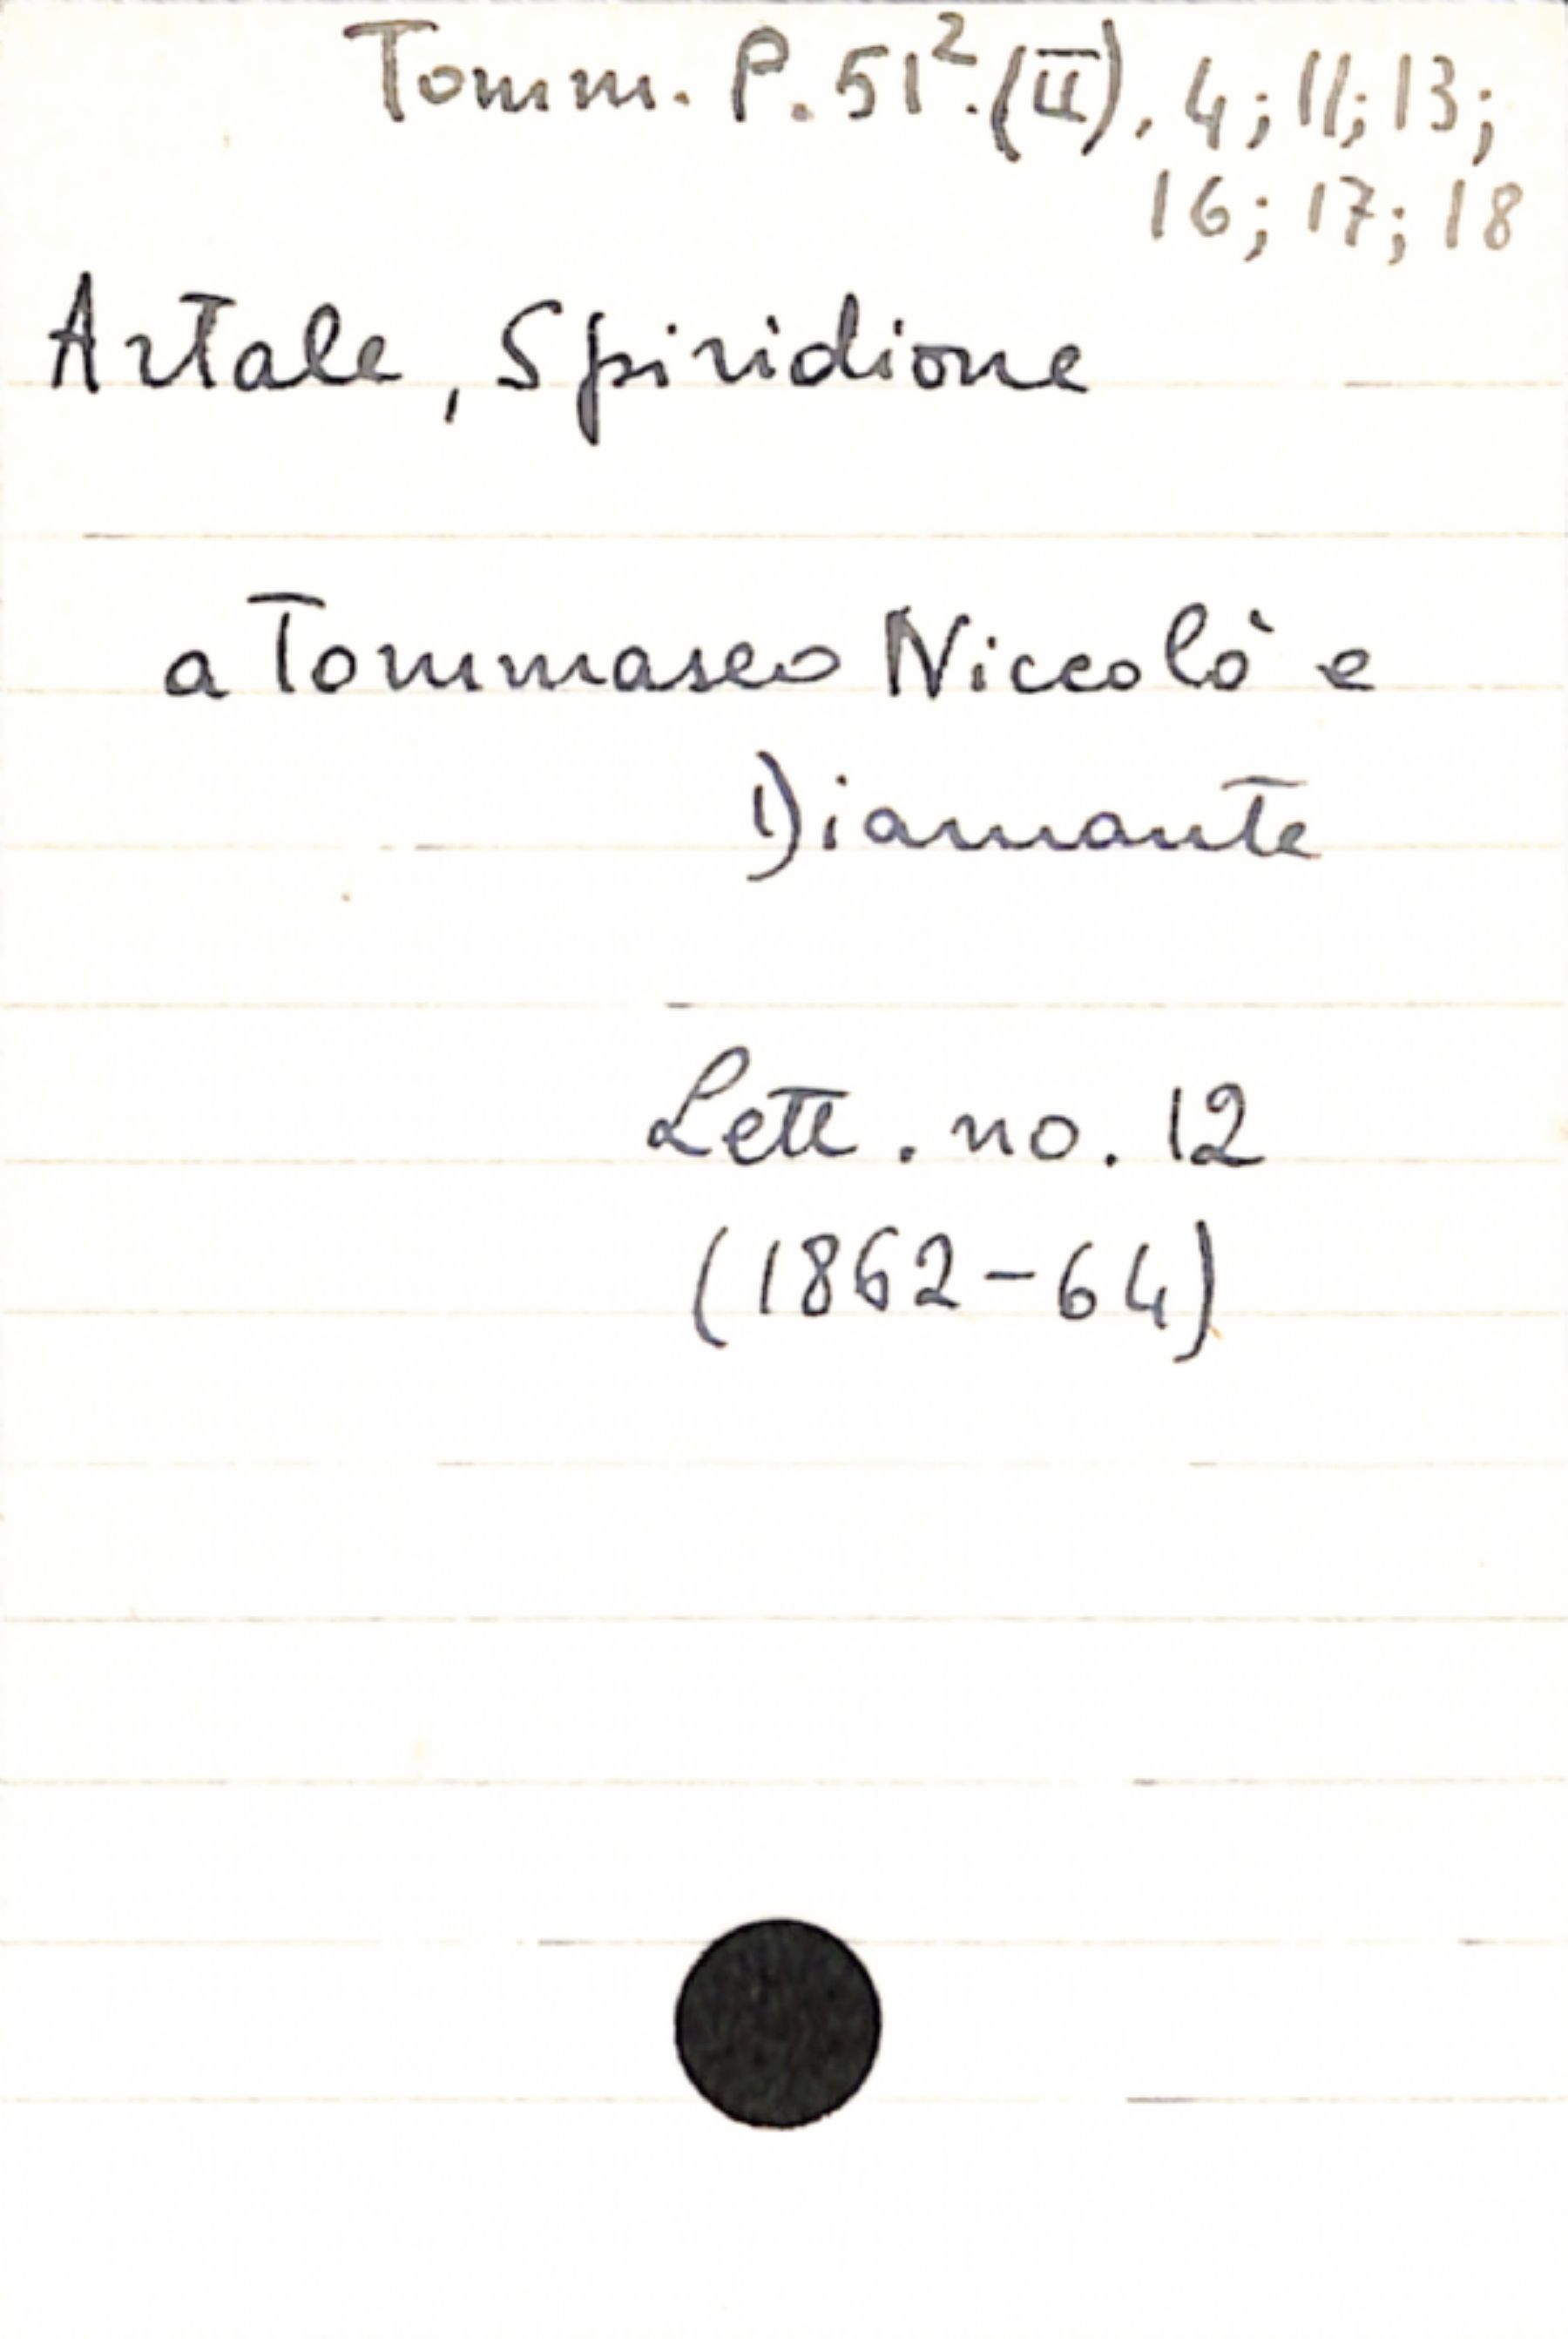 Tomm. P. 51². (II), 4; 11; 13;
16; 17; 18
Artale, Spiridione
a Tommaseo Niccolò e
Diamante
Lett. no. 12
(1862-64)